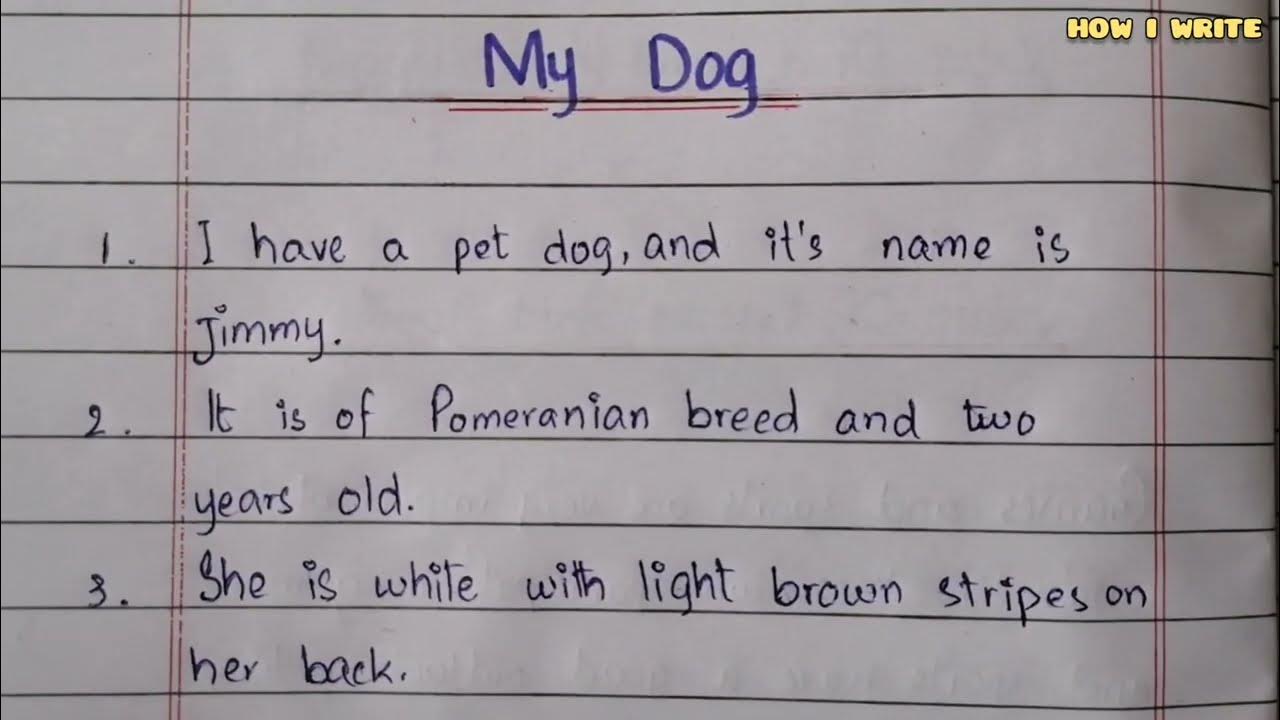 HOW I WRITE
My Dog
1. I have a pet dog, and it's name is
Jimmy.
2. It is of Pomeranian breed and two
years old.
3. She is white with light brown stripes on
her back.